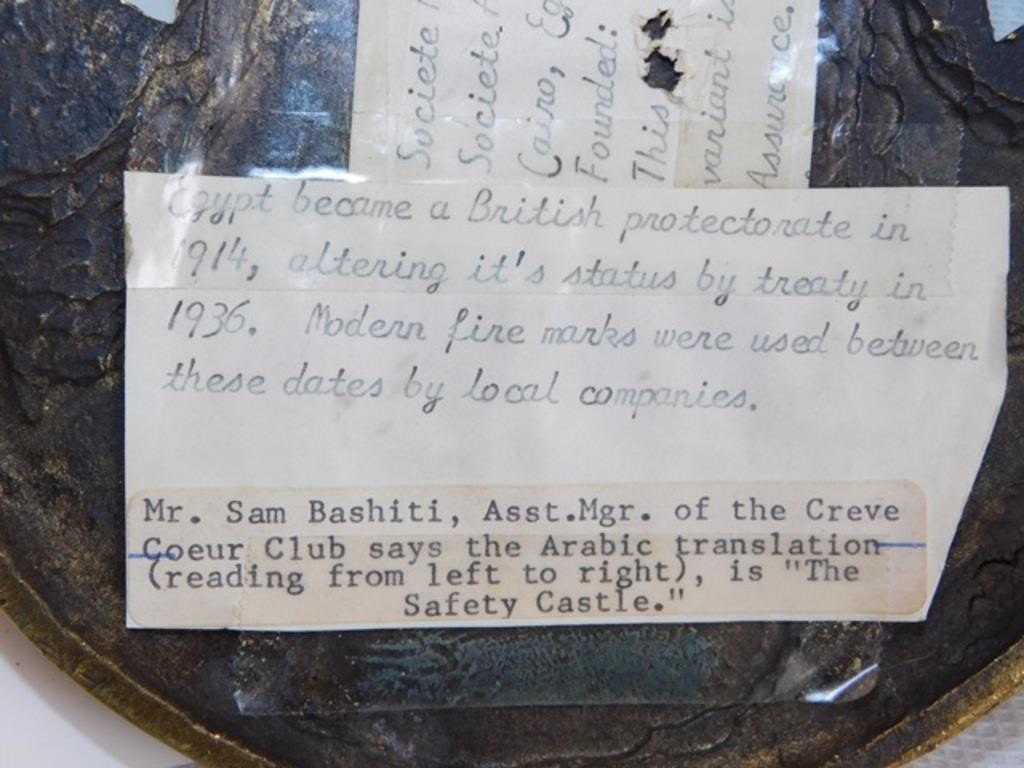 Societe
Societe
Cairo,
Founded:
This
variant is
Assurance.
Egypt became a British protectorate in
1914, altering it's status by treaty in
1936. Modern fire marks were used between
these dates by local companies.
Mr. Sam Bashiti, Asst.Mgr. of the Creve
Coeur Club says the Arabic translation
(reading from left to right), is "The
Safety Castle."